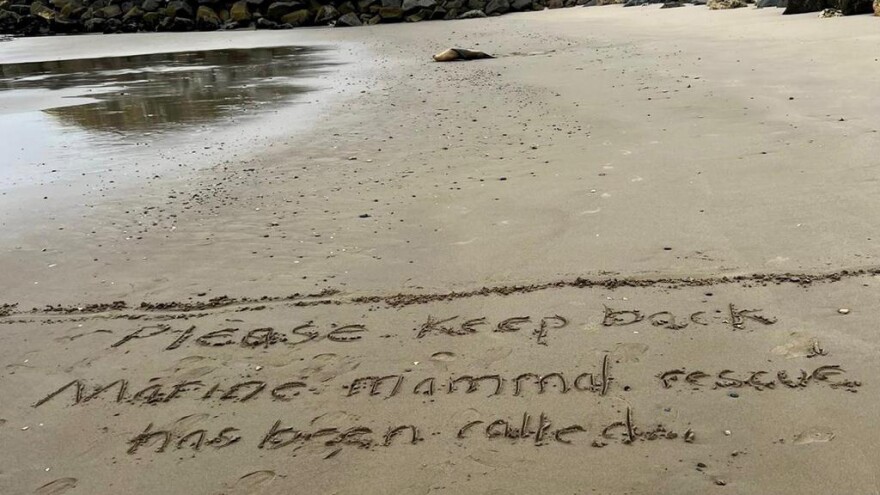 Please keep back
Marine mammal rescue
has been called.